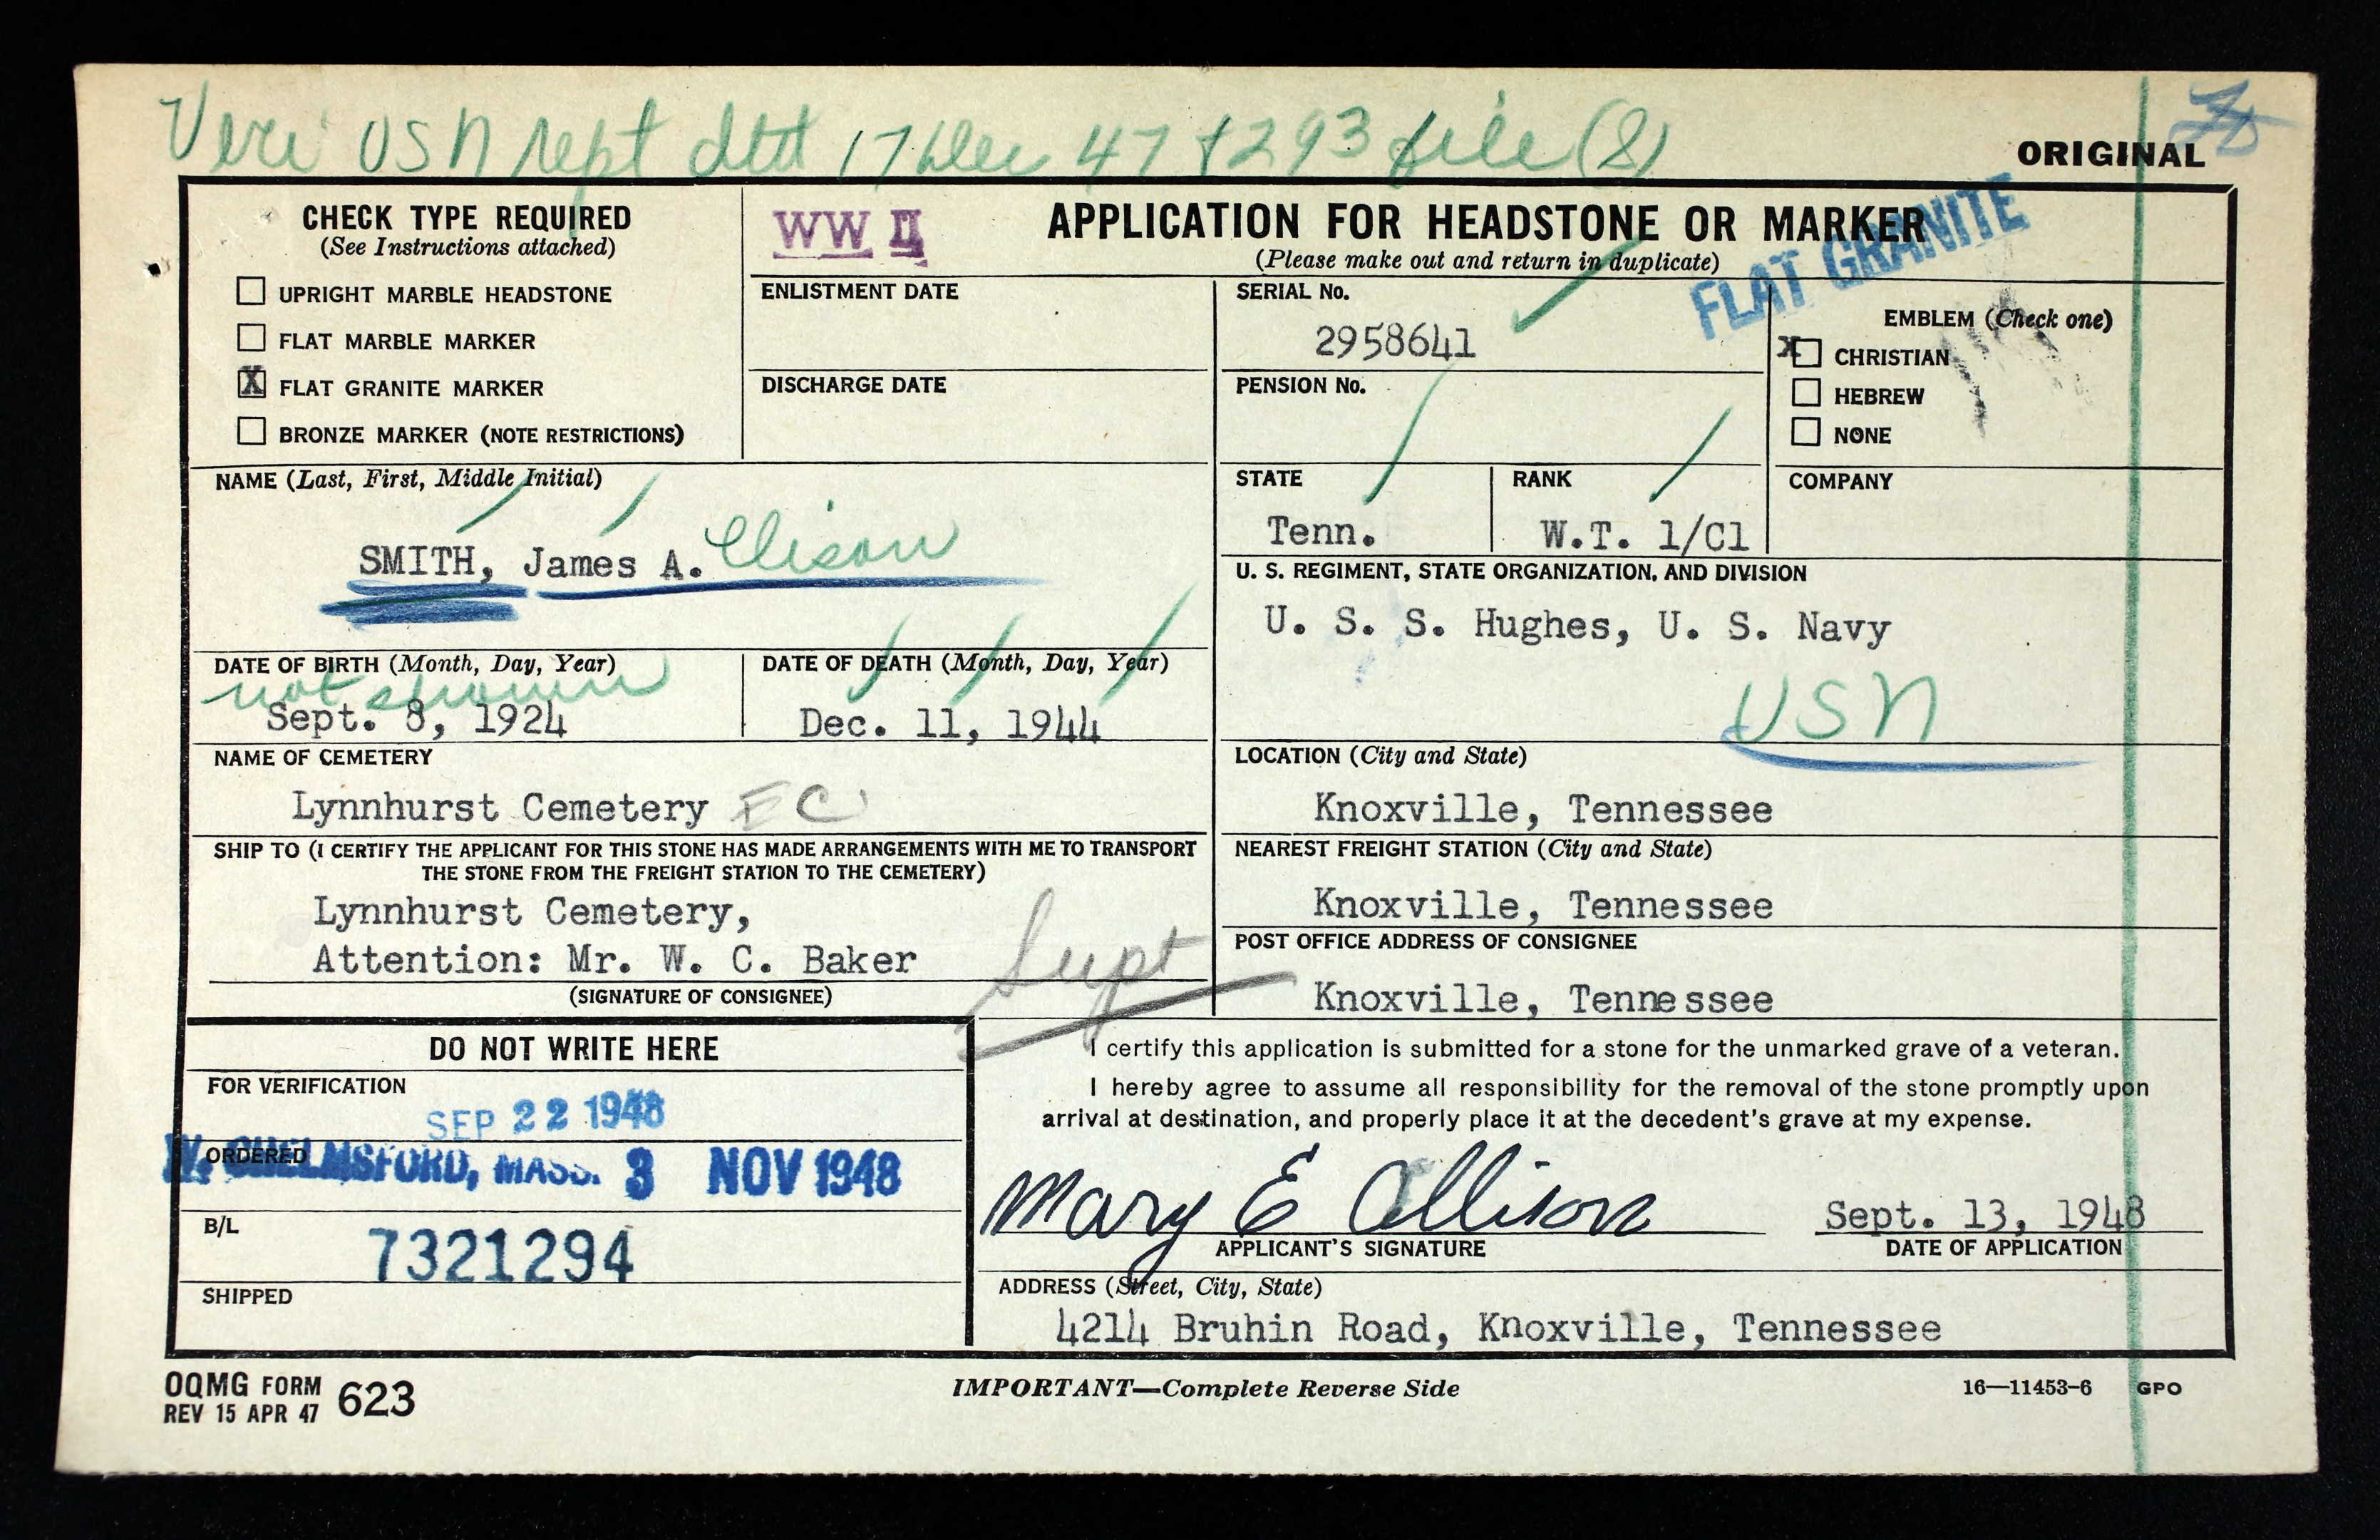 Veri USN rept dtd 17 Dec 47 + 293 file (8)
ORIGINAL
CHECK TYPE REQUIRED
(See Instructions attached)
UPRIGHT MARBLE HEADSTONE
FLAT MARBLE MARKER
X FLAT GRANITE MARKER
BRONZE MARKER (NOTE RESTRICTIONS)
WW II
APPLICATION FOR HEADSTONE OR MARKER
(Please make out and return in duplicate)
FLAT GRANITE
ENLISTMENT DATE
DISCHARGE DATE
SERIAL No.
2958641
PENSION No.
EMBLEM (Check one)
X CHRISTIAN
HEBREW
NONE
NAME (Last, First, Middle Initial)
SMITH, James A. Elison
STATE
Tenn.
RANK
W.T. 1/Cl
COMPANY
U. S. REGIMENT, STATE ORGANIZATION, AND DIVISION
U. S. S. Hughes, U. S. Navy
USN
DATE OF BIRTH (Month, Day, Year)
not shown
Sept. 8, 1924
DATE OF DEATH (Month, Day, Year)
Dec. 11, 1944
NAME OF CEMETERY
Lynnhurst Cemetery EC
LOCATION (City and State)
Knoxville, Tennessee
SHIP TO (I CERTIFY THE APPLICANT FOR THIS STONE HAS MADE ARRANGEMENTS WITH ME TO TRANSPORT
THE STONE FROM THE FREIGHT STATION TO THE CEMETERY)
Lynnhurst Cemetery,
Attention: Mr. W. C. Baker
Supt
(SIGNATURE OF CONSIGNEE)
NEAREST FREIGHT STATION (City and State)
Knoxville, Tennessee
POST OFFICE ADDRESS OF CONSIGNEE
Knoxville, Tennessee
DO NOT WRITE HERE
FOR VERIFICATION
SEP 22 1948
ORDERED
W. CHELMSFORD, MASS. 3 NOV 1948
B/L
7321294
SHIPPED
I certify this application is submitted for a stone for the unmarked grave of a veteran.
I hereby agree to assume all responsibility for the removal of the stone promptly upon
arrival at destination, and properly place it at the decedent's grave at my expense.
Mary E Allison
APPLICANT'S SIGNATURE
Sept. 13, 1948
DATE OF APPLICATION
ADDRESS (Street, City, State)
4214 Bruhin Road, Knoxville, Tennessee
OQMG FORM 623
REV 15 APR 47
IMPORTANT—Complete Reverse Side
16—11453-6 GPO